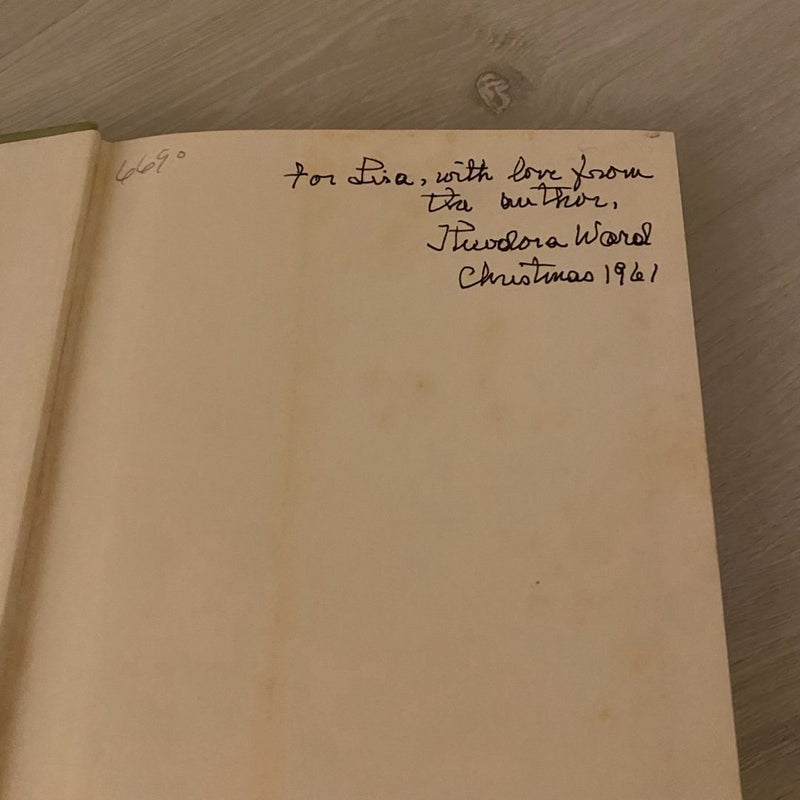 6690
For Lisa, with love from
the author,
Theodora Ward
Christmas 1961